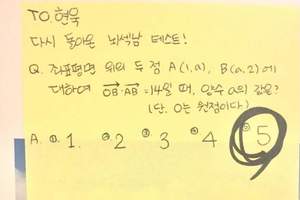 TO. 현욱
다시 돌아온 뇌섹남 테스트!
Q. 좌표평면 위의 두 점 A(1,a), B(a,2)에
대하여 OB·AB=14일 때, 양수 a의 값은?
(단, O는 원점이다)
A. ① 1. ② 2 ③ 3 ④ 4 ⑤ 5